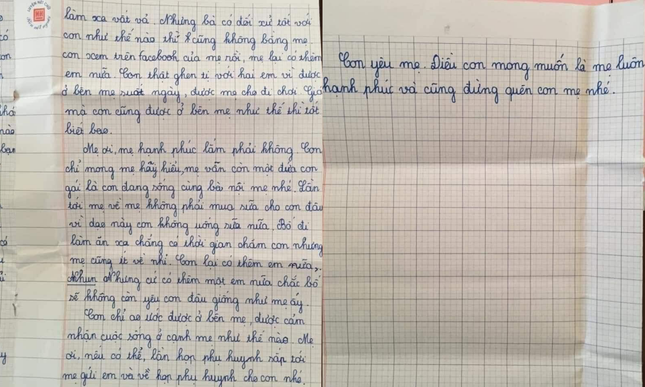 làm xa vất vả. Nhưng bà có đối xử tốt với
con như thế nào thì cũng không bằng mẹ.
con xem trên facebook của mẹ rồi, mẹ lại có thêm
em nữa. Con thật ghen tị với hai em vì được
ở bên mẹ suốt ngày, được mẹ cho đi chơi. Giá
mà con cũng được ở bên mẹ như thế thì tốt
biết bao.
Mẹ ơi, mẹ hạnh phúc lắm phải không. Con
chỉ mong mẹ hãy hiểu, mẹ vẫn còn một đứa con
gái là con đang sống cùng bà nội mẹ nhé. Lần
tới mẹ về mẹ không phải mua sữa cho con đâu
vì dạo này con không uống sữa nữa. Bố đi
làm ăn xa chẳng có thời gian chăm con nhưng
mẹ cũng ít về nhỉ. Con lại có thêm em nữa,
Nhưn Nhưng cứ có thêm một em nữa chắc bố
sẽ không còn yêu con đâu giống như mẹ ấy.
Con chỉ ao ước được ở bên mẹ, được cảm
nhận cuộc sống ở cạnh mẹ như thế nào. Mẹ
ơi, nếu có thể, lần họp phụ huynh sắp tới
mẹ gửi em và về họp phụ huynh cho con nhé,
Con yêu mẹ. Điều con mong muốn là mẹ luôn
hạnh phúc và cũng đừng quên con mẹ nhé.